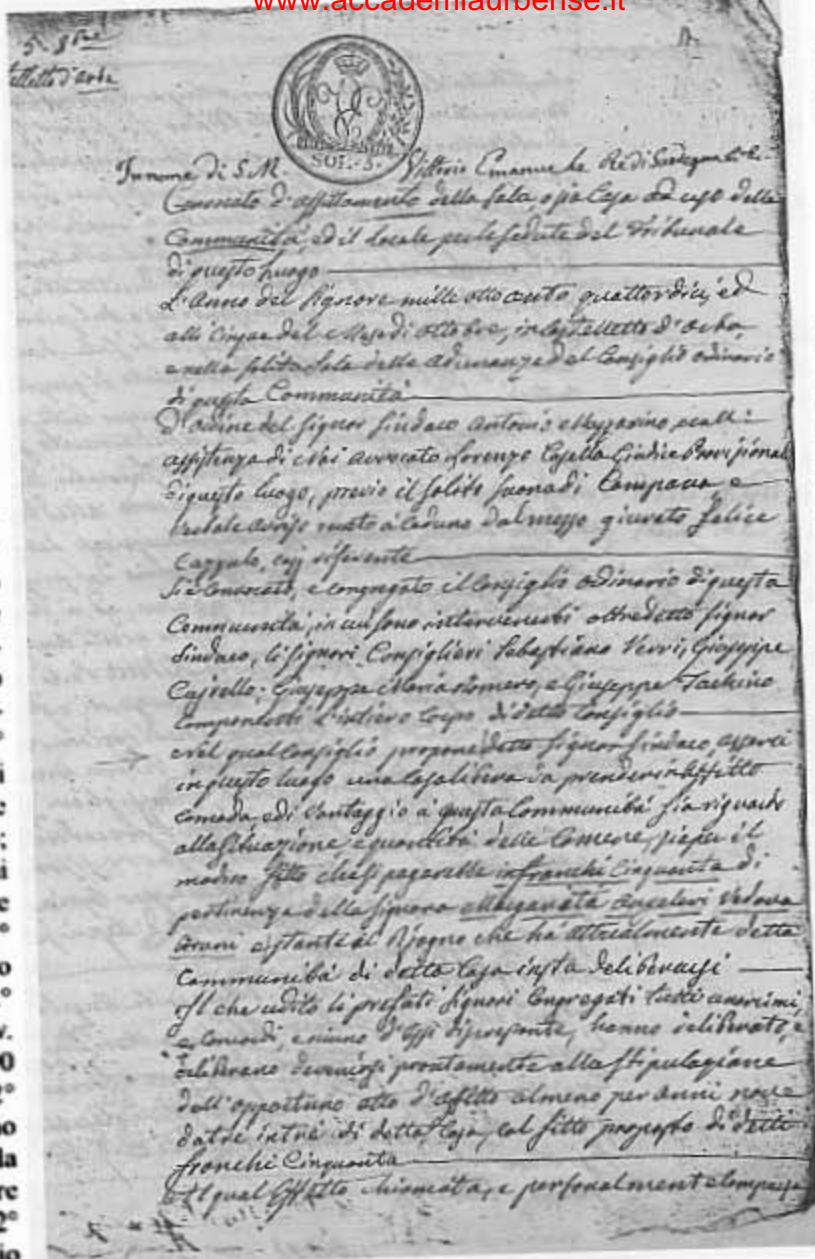 www.accademiaurbense.it
5. 8bre
d'orba
SOL. 5.
In nome di S. M. Vittorio Emanuele Re di Sardegna
d'affittamento della Sala, ossia Casa ad uso della
Communità, ed il locale per le sedute del Tribunale
di questo Luogo
L'Anno del Signore mille ottocento quattordici, ed
alli cinque del Mese di ottobre, in Castelletto d'orba,
e nella solita Sala delle adunanze del Consiglio ordinario
di questa Communità
D'ordine del Signor Sindaco Antonio Mazzarino, e coll'
assistenza di Noi avvocato Lorenzo Casella Giudice Provisional
di questo luogo, previo il solito suono di Campana e
avviso a caduno dal messo giurato Felice
Cazzulo, così riferente
Si è convocato, e congregato il Consiglio ordinario di questa
Communità, in cui sono intervenuti oltre detto Signor
Sindaco, li Signori Consiglieri Sebastiano Verri, Giuseppe
Giuseppe Maria Romero, e Giuseppe Tachino
Componenti l'intiero Corpo di detto Consiglio
Nel qual Consiglio propone detto Signor Sindaco, esservi
in questo luogo una Casa libera da prendersi in affitto
comoda e di vantaggio a questa Communità sia riguardo
alla situazione e quantità delle Camere, sia per il
modico fitto che si pagarebbe in franchi Cinquanta di
pertinenza della Signora Margarita Vedova
al bisogno che ha attualmente detta
Communità di detta Casa insta deliberarsi
Il che udito li prefati Signori Congregati tutti unanimi,
e concordi, e niuno d'essi discrepante, hanno deliberato, e
deliberano devenirsi prontamente alla stipulazione
dell'opportuno atto d'affitto almeno per anni nove
da tre in tre di detta Casa, col fitto proposto di detti
franchi Cinquanta
Al qual effetto chiamata, e personalmente comparsa